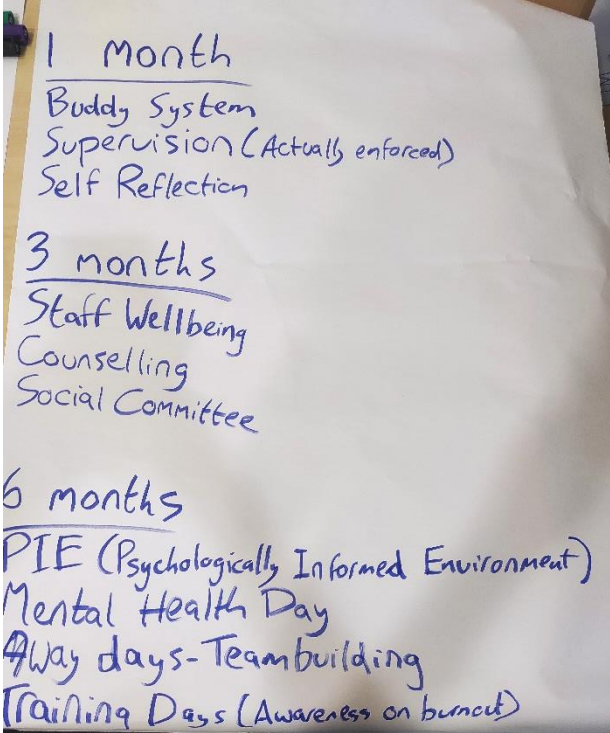 1 Month
Buddy System
Supervision (Actually enforced)
Self Reflection
3 months
Staff Wellbeing
Counselling
Social Committee
6 months
PIE (Psychologically Informed Environment)
Mental Health Day
Away days-Teambuilding
Training Days (Awareness on burnout)